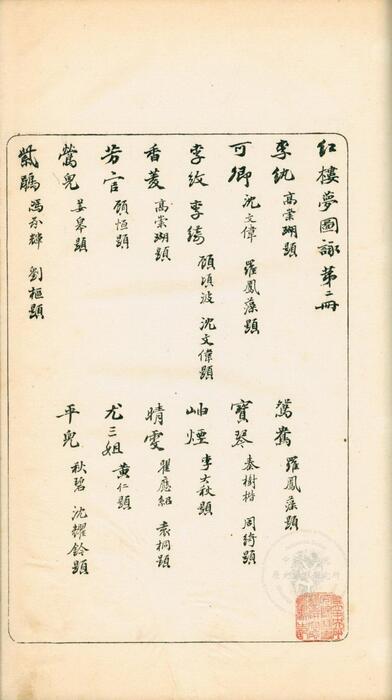 红樓夢圖詠第二冊
李紈 高崇瑚題
鴛鴦 羅鳳藻題
可卿 沈文偉 羅鳳藻題
寶琴 秦樹楷 周綺題
李紋 李綺 顧頃波 沈文偉題
岫煙 李大秋題
香菱 高崇瑚題
晴雯 瞿應紹 袁桐題
芳官 顧恒題
尤三姐 黃仁題
鶯兒 姜皋題
平兒 秋碧 沈耀銓題
紫鵑 馮承輝 劉樞題